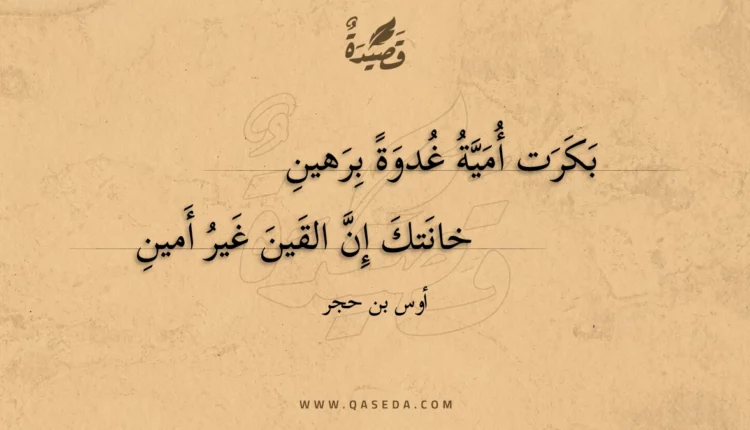 قَصِيْدَةٌ
بَكَرَت أُمَيَّةُ غُدوَةً بِرَهينِ
خانَتكَ إِنَّ القَينَ غَيرُ أَمينِ
أوس بن حجر
WWW.QASEDA.COM